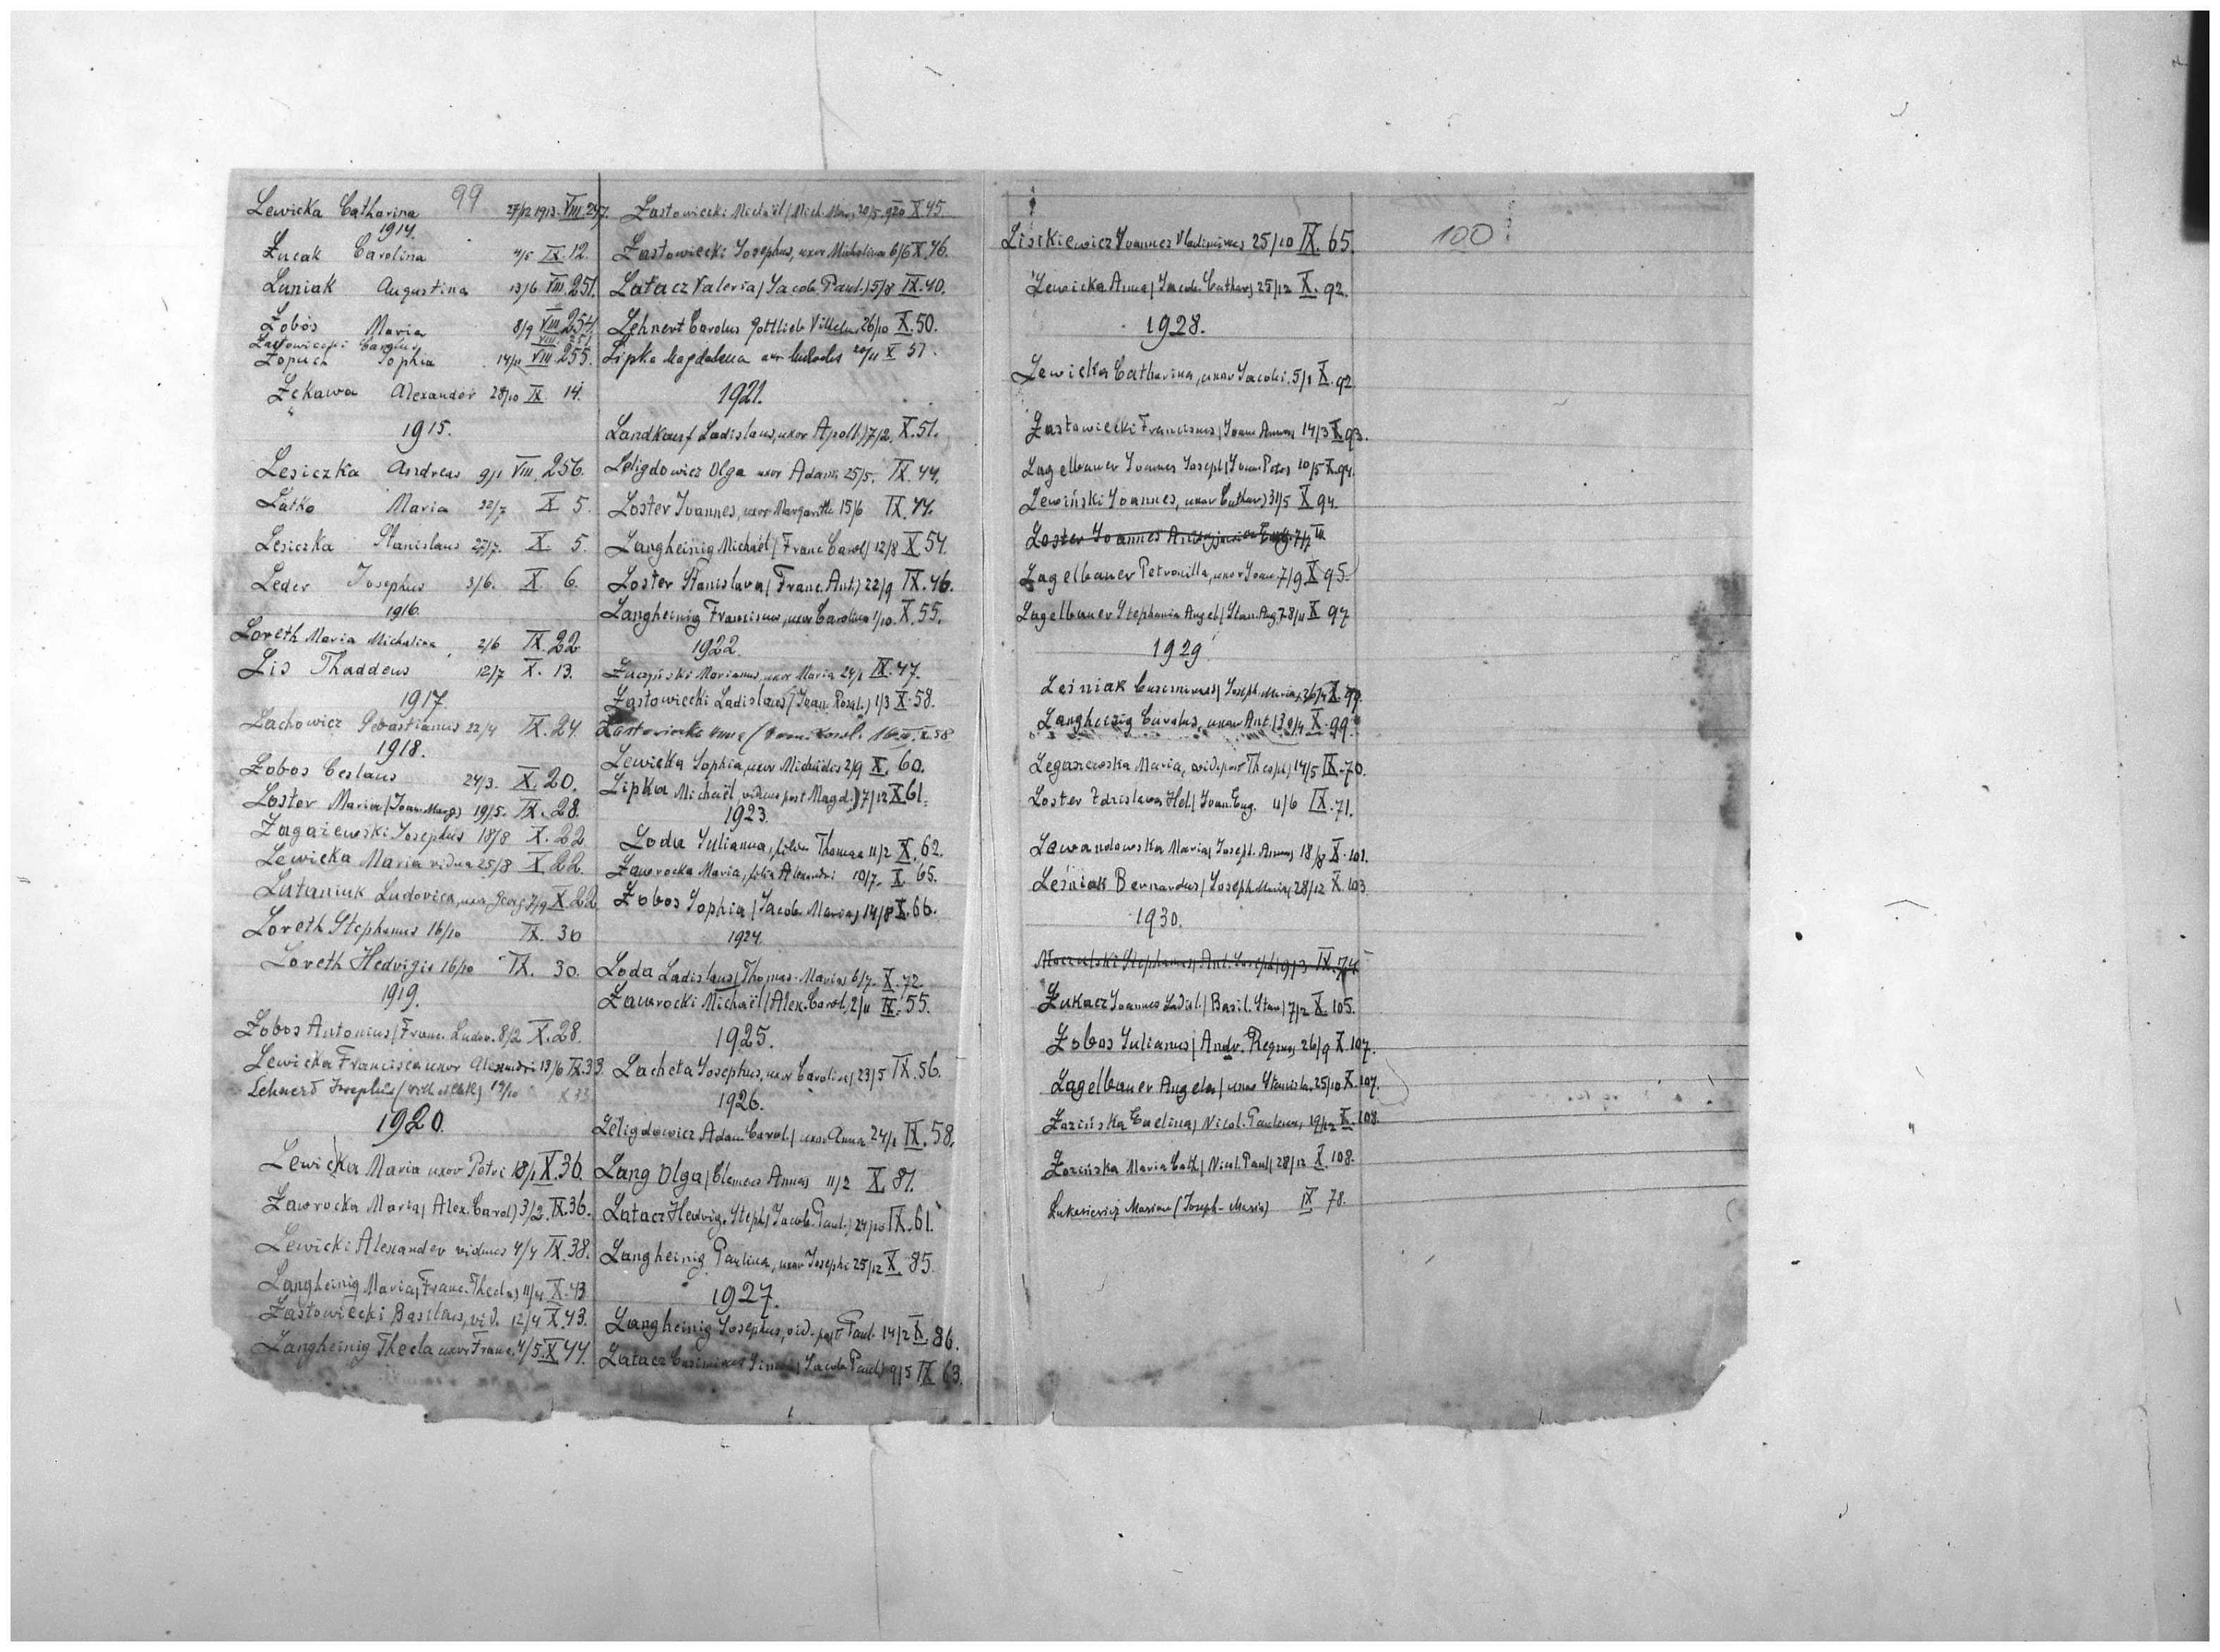 99
Lewicka Catharina 27/12 1913. VIII. 247.
1914.
Łucak Carolina 4/5 IX. 12.
Łuniak Augustina 13/6 VIII. 251.
Łobos Maria 8/9 VIII 254.
Carolus VIII. 251
Łopuch Sophia 14/11 VIII 255.
Łekawa Alexander 28/10 IX 14.
"
1915.
Lesiczka Andreas 9/1 VIII. 256.
Latko Maria 22/7 X 5.
Lesiczka Stanislaus 27/7. X. 5.
Leder Josephus 3/6. X 6.
1916.
Loreth Maria Michalina 2/6 IX. 22
Lis Thaddeus 12/7 X. 13.
1917.
Lachowicz Sebastianus 22/4 IX. 24.
1918.
Łobos Ceslaus 24/3. X. 20.
Loster Maria (Joan. Marg.) 19/5. IX. 28.
Łagaiewski Josephus 18/8 X. 22
Lewicka Maria vidua 25/8 X 22.
Lutaniuk Ludovica, uxor Georg. 7/9 X. 22.
Loreth Stephanus 16/10 IX. 30
Loreth Hedvigis 16/10 IX. 30.
1919.
Łobos Antonius (Franc. Ludov. 8/2 X. 28.
Lewicka Francisca uxor Alexandri 13/6 IX. 33.
Lehnerd Josephus 19/10 X 33
1920.
Lewicka Maria uxor Petri 18/1 X. 36.
Ławrocka Maria (Alex. Carol.) 3/2. IX. 36.
Lewicki Alexander viduus 4/4 IX. 38.
Langheinig Maria (Franc. Thecla) 11/4 X. 43
Łastowiecki Basilius, vid. 12/4 X. 43.
Langheinig Thecla uxor Franc. 4/5. X 44.
Łastowiecki Michaël (Mich. Mar.) 30/5. 920 X 45.
Łastowiecki Josephus, uxor Michalina 6/6 X. 46.
Łatacz Valeria (Jacob. Paul.) 5/8 IX. 40.
Lehnert Carolus Gottlieb Vilhelm. 26/10 X. 50.
Lipka Magdalena uxor Michaelis 20/11 X 51.
1921.
Landkauf Ladislaus, uxor Apoll. 17/2. X. 51.
Leligdowicz Olga uxor Adami 25/5. IX. 44.
Loster Joannes, uxor Margarith. 15/6 IX. 44.
Langheinig Michaël (Franc. Carol.) 12/8 X. 54.
Loster Stanislava (Franc. Ant.) 22/9 IX. 46.
Langheinig Franciscus, uxor Carolina 1/10. X. 55.
1922.
Łuczyński Marianus, uxor Maria 24/1 IX. 47.
Łastowiecki Ladislaus (Joan. Rosal.) 1/3 X. 58.
X. 58
Lewicka Sophia, uxor Michaelis 2/9 X. 60.
Lipka Michaël viduus post Magd.) 7/12 X 61.
1923.
Loda Julianna, filia Thomae 11/2 X. 62.
Ławrocka Maria, filia Alexandri 10/7. X. 65.
Łobos Sophia (Jacob. Maria) 14/8 X. 66.
1924.
Loda Ladislaus (Thomas. Maria) 6/7. X. 72.
Ławrocki Michaël (Alex. Carol.) 2/11 IX. 55.
1925.
Lacheta Josephus, uxor Carolina) 23/5 IX. 56.
1926.
Leligdowicz Adam Carol. (uxor Anna 24/1 IX. 58.
Lang Olga (Clemens Anna) 11/2 X. 81.
Łatacz Hedvig. Steph. (Jacob. Paul.) 24/10 IX. 61.
Langheinig Paulina, uxor Josephi 25/12 X. 85.
1927.
Langheinig Josephus, vid. post Paul. 14/2 X. 86.
Łatacz Casimirus (Jacob. Paul.) 9/5 IX 63.
Lisikiewicz Joannes Vladimirus 25/10 IX. 65.
100
Lewicka Anna (Jacob. Cathar.) 25/12 X. 92.
1928.
Lewicka Catharina, uxor Jacobi. 5/1 X. 92
Łastowiecki Franciscus (Joan. Anna) 14/3 X. 93.
Lagelbauer Joannes Joseph (Joan. Petr.) 10/5 X. 94.
Lewiński Joannes, uxor Cathar.) 31/5 X 94.
Loster Joannes
Lagelbauer Petronilla, uxor Joan. 7/9 X 95.
Lagelbauer Stephania Angel. (Stan. Ang. 28/11 X 97
1929.
Leśniak Casimirus (Joseph. Maria) 26/4 X. 99.
Langheinig Carolus, uxor Ant. (30/4 X. 99.
Legaszewska Maria, vid. post Theoph.) 14/5 IX. 70.
Loster Zdzislava Hel. (Joan. Eug. 11/6 IX. 71.
Lewandowska Maria (Joseph. Anna) 18/8 X. 101.
Leśniak Bernardus (Joseph Maria) 28/12 X. 103
1930.
Moczulski Stephanus (Ant. Joseph) 9/3 IX. 74
Łukacz Joannes Ladisl. (Basil. Stan.) 7/2 X. 105.
Łobos Julianus (Andr. Regina) 26/9 X. 107.
Lagelbauer Angela (uxor Stanislai 25/10 X. 107.
Łozińska Evelina (Nicol. Paulina) 19/12 X. 108.
Łozińska Maria Cath. (Nicol. Paul.) 28/12 X. 108.
Lukasiewicz Marian (Joseph - Maria) IX 78.